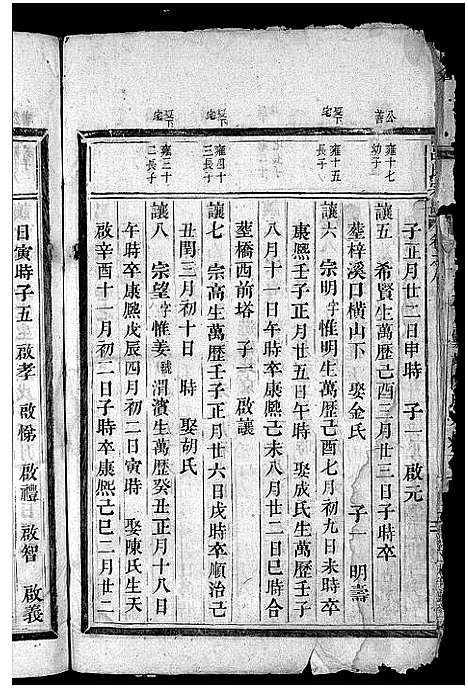 公善
雍十七幼子
墅下宅
雍十五長子
墅下宅
雍四十三長子
墅下宅
雍三十二長子
子正月廿二日申時　子一　啟元
讓五　希賢生萬歷己酉三月廿三日子時卒
塟梓溪口橫山下　娶金氏　子一　明壽
讓六　宗明字惟明生萬歷己酉七月初九日未時卒
康熙壬子正月廿五日午時　娶成氏生萬歷壬子
八月十一日午時卒康熙己未八月廿二日巳時合
塟橋西前塔　子一　啟讓
讓七　宗高生萬歷壬子正月廿六日戌時卒順治己
丑閏三月初十日　時　娶胡氏
讓八　宗望字惟姜號渭濱生萬歷癸丑正月十八日
午時卒康熙戊辰四月初二日寅時　娶陳氏生天
啟辛酉十一月初二日子時卒康熙己巳二月廿二
日寅時子五　啟孝　啟悌　啟禮　啟智　啟義